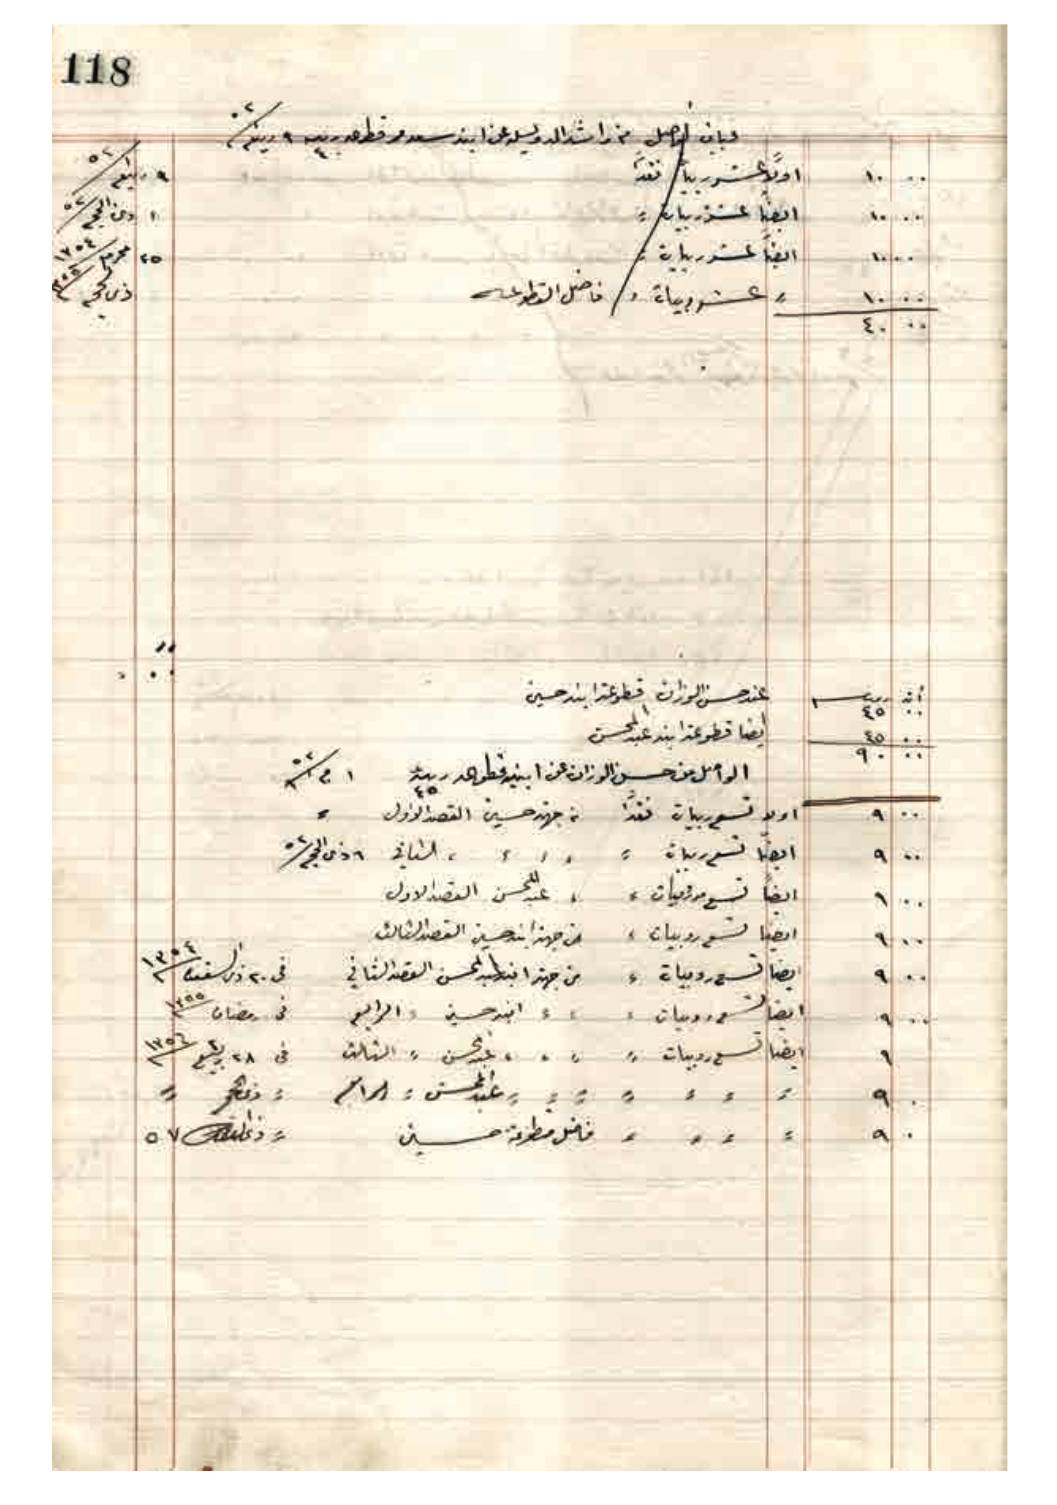 118
بيان الواصل من راشد الدويسان عن ابنه سعد من قطوعه ربيه ٩ ربيع
٠٠ ١٠ اولاً عشر ربيات نقداً ٩ ربيع ٥٢
٠٠ ١٠ ايضاً عشر ربيات 〃 ١ ذى الحجه ٥٢
٠٠ ١٠ ايضاً عشر ربيات 〃 ٢٥ محرم ١٣٥٤
٠٠ ١٠ 〃 عشر ربيات 〃 فاضل القطوعه ذى الحجه
٠٠ ٤٠
آنه ربيه عند حسن الوزان قطوعة ابنه حسين
٠٠ ٤٥
٠٠ ٤٥ ايضا قطوعة ابنه عبدالمحسن
٠٠ ٩٠
الواصل من حسن الوزان عن ابنيه قطوعه ربية ٤٥ ١
٠٠ ٩ اولا تسع ربيات نقداً من جهة حسين القصد الاول 〃
٠٠ ٩ ايضاً تسع ربيات 〃 〃 〃 〃 〃 الثاني ٦ ذى الحجه ٥٢
٠٠ ٩ ايضاً تسع روبيات 〃 〃 عبدالمحسن القصد الاول
٠٠ ٩ ايضاً تسع روبيات 〃 من جهة ابنه حسين القصد الثالث
٠٠ ٩ ايضا تسع روبيات 〃 من جهة ابنه عبدالمحسن القصد الثاني فى ٢٠ ذى القعده ١٣٥٤
٠٠ ٩ ايضا تسع روبيات 〃 〃 〃 ابنه حسين 〃 الرابع فى رمضان ١٣٥٥
٩ ايضا تسع روبيات 〃 〃 〃 〃 عبدالمحسن 〃 الثالث فى ٢٨ ربيع ١٣٥٦
٠ ٩ 〃 〃 〃 〃 〃 〃 〃 عبدالمحسن 〃 الرابع 〃 ذى الحجه 〃
٠ ٩ 〃 〃 〃 〃 فاضل قطوعة حسين 〃 ذى القعده ٥٧